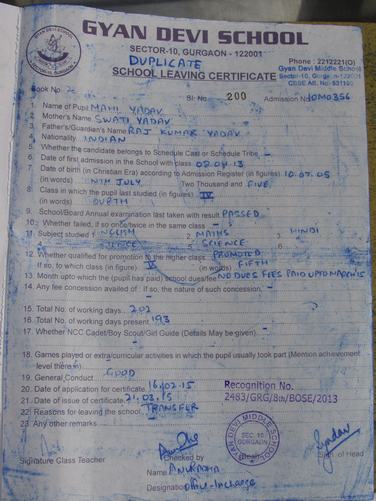 GYAN DEVI SCHOOL
SECTOR-10, GURGAON - 122001
DUPLICATE
Phone : 2212221(O)
Gyan Devi Middle School
Sector-10, Gurgaon-122001
SCHOOL LEAVING CERTIFICATE
Book No. 2
Sl. No. 200
Admission No. 10M0356
1. Name of Pupil MAHI YADAV
2. Mother's Name SWATI YADAV
3. Father's/Guardian's Name RAJ KUMAR YADAV
4. Nationality INDIAN
5. Whether the candidate belongs to Schedule Cast or Schedule Tribe -
6. Date of first admission in the School with class 02.04.13
7. Date of birth (in Christian Era) according to Admission Register (in figures) 10.07.05
(in words) NTH JULY Two Thousand and FIVE
8. Class in which the pupil last studied (in figures) IV
(in words) OURTH
9. School/Board Annual examination last taken with result PASSED
10. Whether failed, if so once/twice in the same class -
11. Subject studied 1. NGLISH 2. MATHS 3. HINDI
5. SCIENCE 6.
12. Whether qualified for promotion to the higher class PROMOTED
If so, to which class (in figure) V (in words) FIFTH
13. Month upto which the (pupil has paid) school dues/fee NO DUES FEES PAID UPTO MARCH 15
14. Any fee concession availed of : If so, the nature of such concession, -
15. Total No. of working days 202
16. Total No. of working days present 193
17. Whether NCC Cadet/Boy Scout/Girl Guide (Details May be given) -
18. Games played or extra/curricular activities in which the pupil usually took part (Mention achievement
level therein)
19. General Conduct GOOD
20. Date of application for certificate 16.02.15
21. Date of issue of certificate 21.03.15
22. Reasons for leaving the school TRANSFER
23. Any other remarks
Recognition No.
2483/GRG/8th/BOSE/2013
GYAN DEVI MIDDLE SCHOOL
SEC. 10
GURGAON
Signature Class Teacher
Checked by
Sign of Head
Name ANURADHA
Designation Office-Incharge